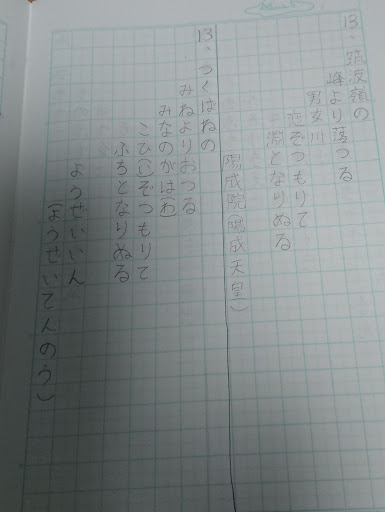 13、筑波嶺の
峰より落つる
男女川
恋ぞつもりて
淵となりぬる
陽成院(陽成天皇)
13、つくばねの
みねよりおつる
みなのがは(わ)
こひ(い)ぞつもりて
ふちとなりぬる
ようぜいいん
(ようぜいてんのう)